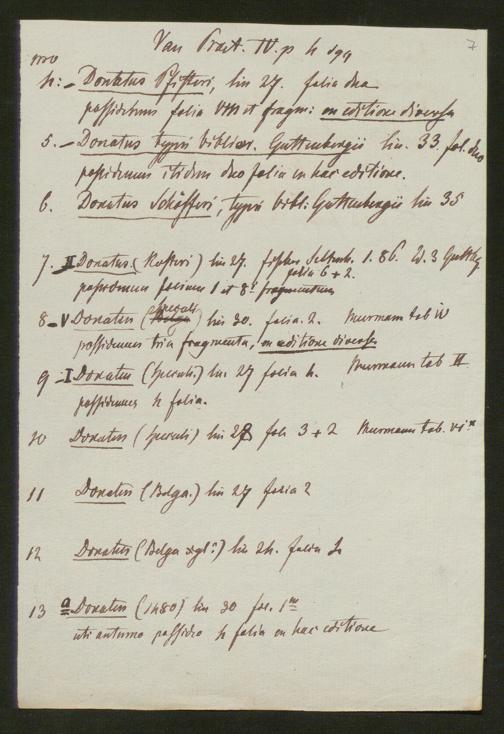 Van Praet. IV. p 4 199
7
nro
4: - Donatus Pfisteri, lin 27. folia duo
possidemus folia VIII et fragm: ex editione diversa
5. - Donatus typis biblior. Guttenbergii lin. 33. fol. duo
possidemus itidem duo folia ex hac editione.
6. Donatus Schöfferi, typis bibl: Guttenbergii lin 35
7. - II Donatus (Kosteri) lin 27. fischer 1. 86.
folia 6 + 2.
possidemus folium 1 et 8. fragmentum
8 - V Donatus (Speculi Belga) lin 30. folia 2. Meermann tab IV
possidemus tria fragmenta, ex editione diversa
9 - I Donatus (Speculi.) lin 27 folia 4. Meermann tab II
possidemus 4 folia.
10 Donatus (Speculi) lin 28 fol 3 + 2 Meermann tab. VI x
11 Donatus (Belga.) lin 27 folia 2
12 Donatus (Belga) lin 24. folia 2
13 a Donatus (1480) lin 30 fol. 1m
uti autumo possideo 4 folia ex hac editione